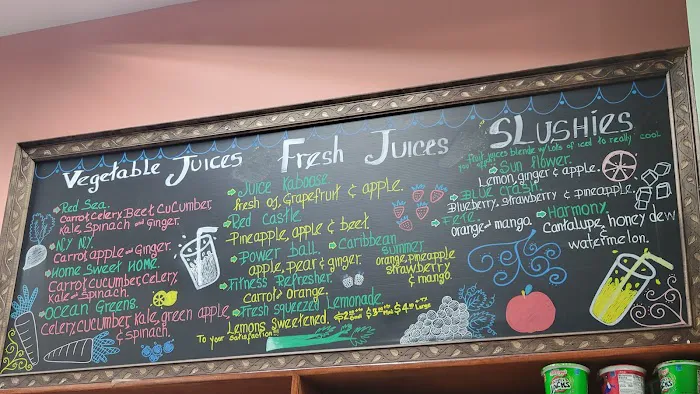 Vegetable Juices
Red Sea.
Carrot, Celery, Beet, Cucumber,
Kale, Spinach and Ginger.
N.Y N.Y.
Carrot, apple and Ginger.
Home Sweet Home
Carrot, cucumber, Celery,
Kale and Spinach.
Ocean Greens.
Celery, cucumber, Kale, green apple
& Spinach.
Fresh Juices
Juice Kaboose
fresh oj, Grapefruit & apple.
Red Castle
Pineapple, apple & beet.
Power ball.
apple, pear & ginger.
Fitness Refresher.
Carrot & Orange.
Fresh squeezed Lemonade
Lemons Sweetened.
To your Satisfaction
Caribbean
Summer
orange, pineapple
Strawberry
& mango.
SLUSHIES
fruit juices blende w/ Lots of iced to really cool
Sun flower.
Lemon, ginger & apple.
Blue crash.
Blueberry, Strawberry & pineapple.
Fete.
orange and mango.
Harmony.
Cantalupe, honey dew
& watermelon.